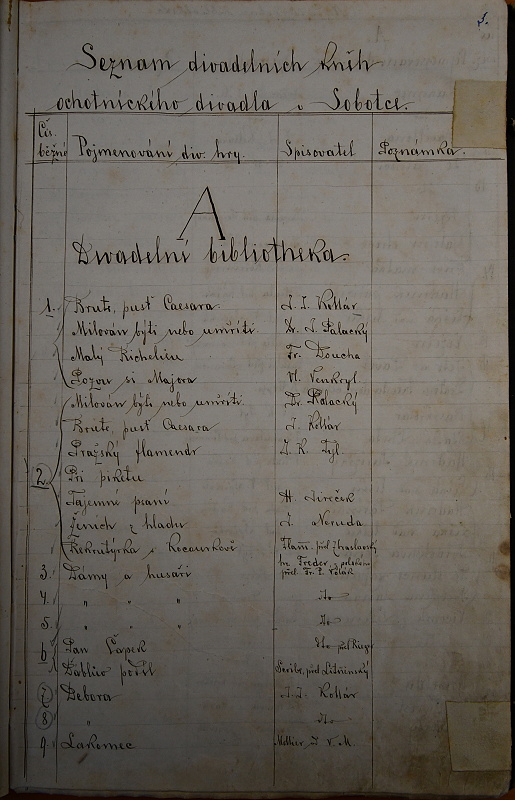 Seznam divadelních knih
ochotnického divadla v Sobotce.
Čís. běžné Pojmenování div. hry. Spisovatel Poznámka.
A
Divadelní bibliotheka.
1. Brute, pusť Caesara. J. J. Kollár
Milován býti nebo umříti. Dr. J. Palacký
Malý Richelieu Fr. Doucha
Pozor si Majora Vl. Venkryl.
Milován býti nebo umříti. Dr. Palacký
Brute, pusť Caesara J. Kollár
Pražský flamendr J. K. Tyl
2. Při piketu
Tajemné psaní H. Jireček
Ženich z hladu J. Neruda
Rekrutýrka v Kocourkově
3. Dámy a husaři hr. Fredro, z polského přel. Fr. V.
4. " " " dto
5. " " " dto
6. Pan Čapek dto přel.
Ďáblův podíl Scribe, přel.
7. Debora J. J. Kollár
8. " dto
9. Lakomec J. V. M.